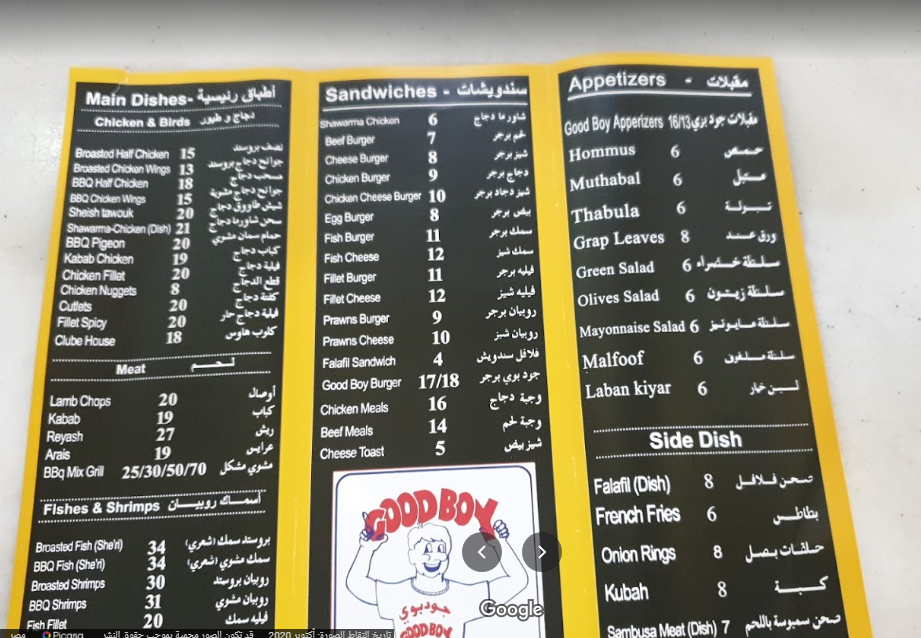 Main Dishes- أطباق رئيسية
Chicken & Birds دجاج و طيور
Broasted Half Chicken 15 نصف بروستد
Broasted Chicken Wings 13 جوانح دجاج بروستد
BBQ Half Chicken 18 مسحب دجاج
BBQ Chicken Wings 15 جوانح دجاج مشوية
Sheish tawouk 20 شيش طاووق دجاج
Shawarma-Chicken (Dish) 21 صحن شاورما دجاج
BBQ Pigeon 20 حمام سمان مشوي
Kabab Chicken 19 كباب دجاج
Chicken Fillet 20 فيلية دجاج
Chicken Nuggets 8 قطع الدجاج
Cutlets 20 كفتة دجاج
Fillet Spicy 20 فيلية دجاج حار
Clube House 18 كلوب هاوس
Meat لحم
Lamb Chops 20 أوصال
Kabab 19 كباب
Reyash 27 ريش
Arais 19 عرايس
BBq Mix Grill 25/30/50/70 مشوي مشكل
Fishes & Shrimps أسماك روبيان
Broasted Fish (She'ri) 34 بروستد سمك (شعري)
BBQ Fish (She'ri) 34 سمك مشوي (شعري)
Broasted Shrimps 30 روبيان بروستد
BBQ Shrimps 31 روبيان مشوي
Fish Fillet 20 فيليه سمك
Sandwiches - سندويشات
Shawarma Chicken 6 شاورما دجاج
Beef Burger 7 لحم برجر
Cheese Burger 8 شيز برجر
Chicken Burger 9 دجاج برجر
Chicken Cheese Burger 10 شيز دجاد برجر
Egg Burger 8 بيض برجر
Fish Burger 11 سمك برجر
Fish Cheese 12 سمك شيز
Fillet Burger 11 فيليه برجر
Fillet Cheese 12 فيليه شيز
Prawns Burger 9 روبيان برجر
Prawns Cheese 10 روبيان شيز
Falafil Sandwich 4 فلافل سندويش
Good Boy Burger 17/18 جود بوي برجر
Chicken Meals 16 وجبة دجاج
Beef Meals 14 وجبة لحم
Cheese Toast 5 شيز بيض
GOOD BOY
جود بوي
GOOD BOY
Appetizers - مقبلات
Good Boy Apperizers 16/13 مقبلات جود بري
Hommus 6 حمص
Muthabal 6 متبل
Thabula 6 تبولة
Grap Leaves 8 ورق عنب
Green Salad 6 سلطة خضراء
Olives Salad 6 سلطة زيتون
Mayonnaise Salad 6 سلطة مايونيز
Malfoof 6 سلطة ملفوف
Laban kiyar 6 لبن خيار
Side Dish
Falafil (Dish) 8 صحن فلافل
French Fries 6 بطاطس
Onion Rings 8 حلقات بصل
Kubah 8 كبة
Sambusa Meat (Dish) 7 صحن سمبوسة باللحم
Google
تاريخ التقاط الصورة: أكتوبر 2020 قد تكون الصور محمية بموجب حقوق النشر Picasa مصر